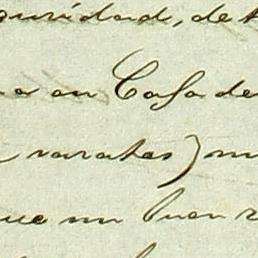 guridad, de
a en Casa de
varates) m
que un buen